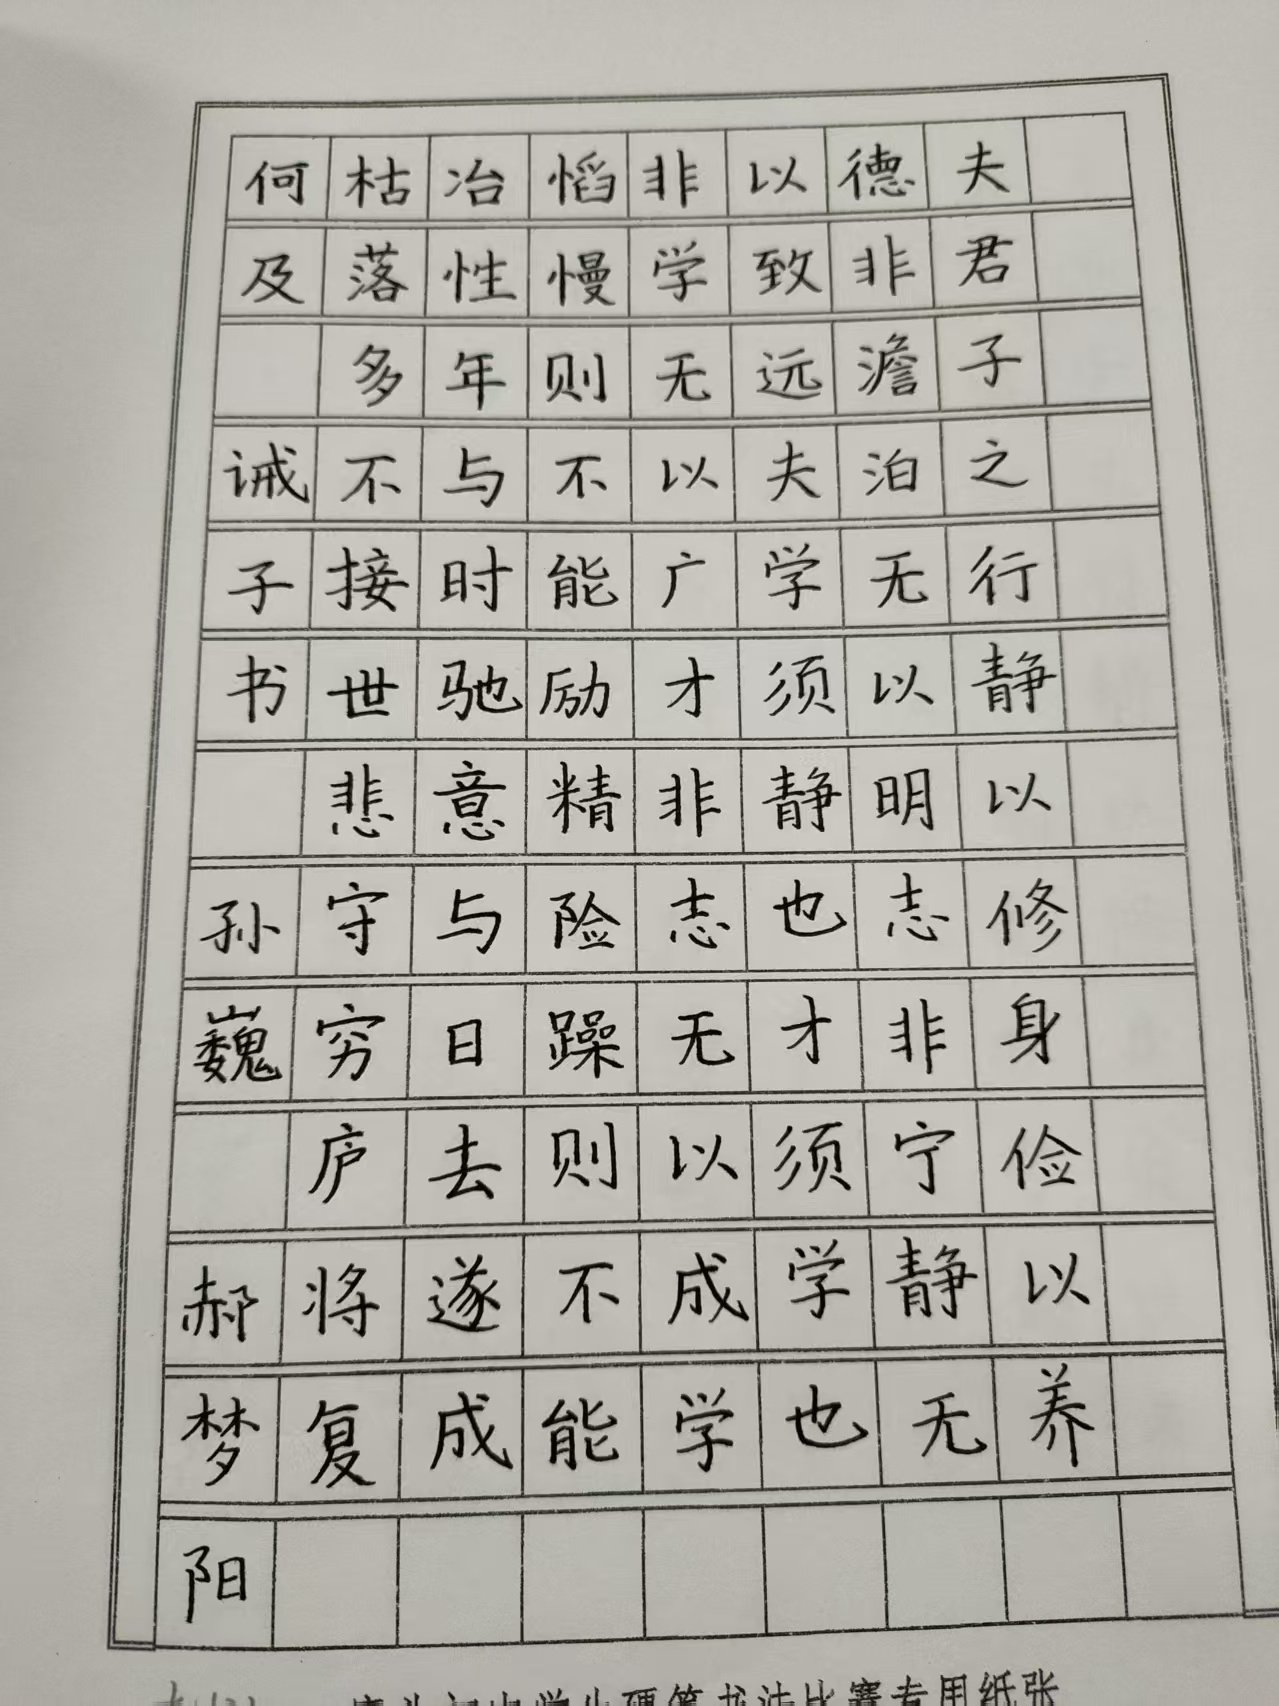 夫君子之行静以修身俭以养
德非澹泊无以明志非宁静无
以致远夫学须静也才须学也
非学无以广才非志无以成学
慆慢则不能励精险躁则不能
冶性年与时驰意与日去遂成
枯落多不接世悲守穷庐将复
何及 诫子书 孙巍 郝梦阳
初中学生硬笔书法比赛专用纸张